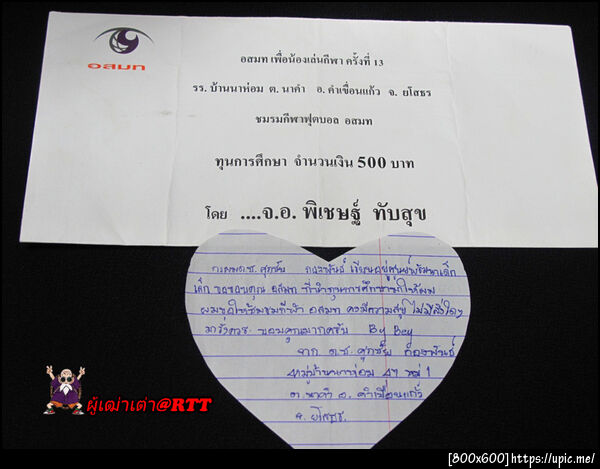 อสมท
อสมท เพื่อน้องเล่นกีฬา ครั้งที่ 13
รร. บ้านนาห่อม ต. นาคำ อ. คำเขื่อนแก้ว จ. ยโสธร
ชมรมกีฬาฟุตบอล อสมท
ทุนการศึกษา จำนวนเงิน 500 บาท
โดย ....จ.อ. พิเชษฐ์ ทับสุข
กระผมด.ช. ศุภชัย เรียนอยู่ศูนย์พัฒนาเด็ก
เล็ก ขอขอบคุณ อสมท ที่นำทุนการศึกษามาให้ผม
ผมขอให้ อสมท ไม่มีสิ่งใดๆ
ขอบคุณมากครับ By Bey
จาก ด.ช. ศุภชัย
หมู่บ้านนาห่อม 1
ต. นาคำ อ. คำเขื่อนแก้ว
จ. ยโสธร
ผู้เฒ่าเต่า@RTT
[800x600]https://upic.me/